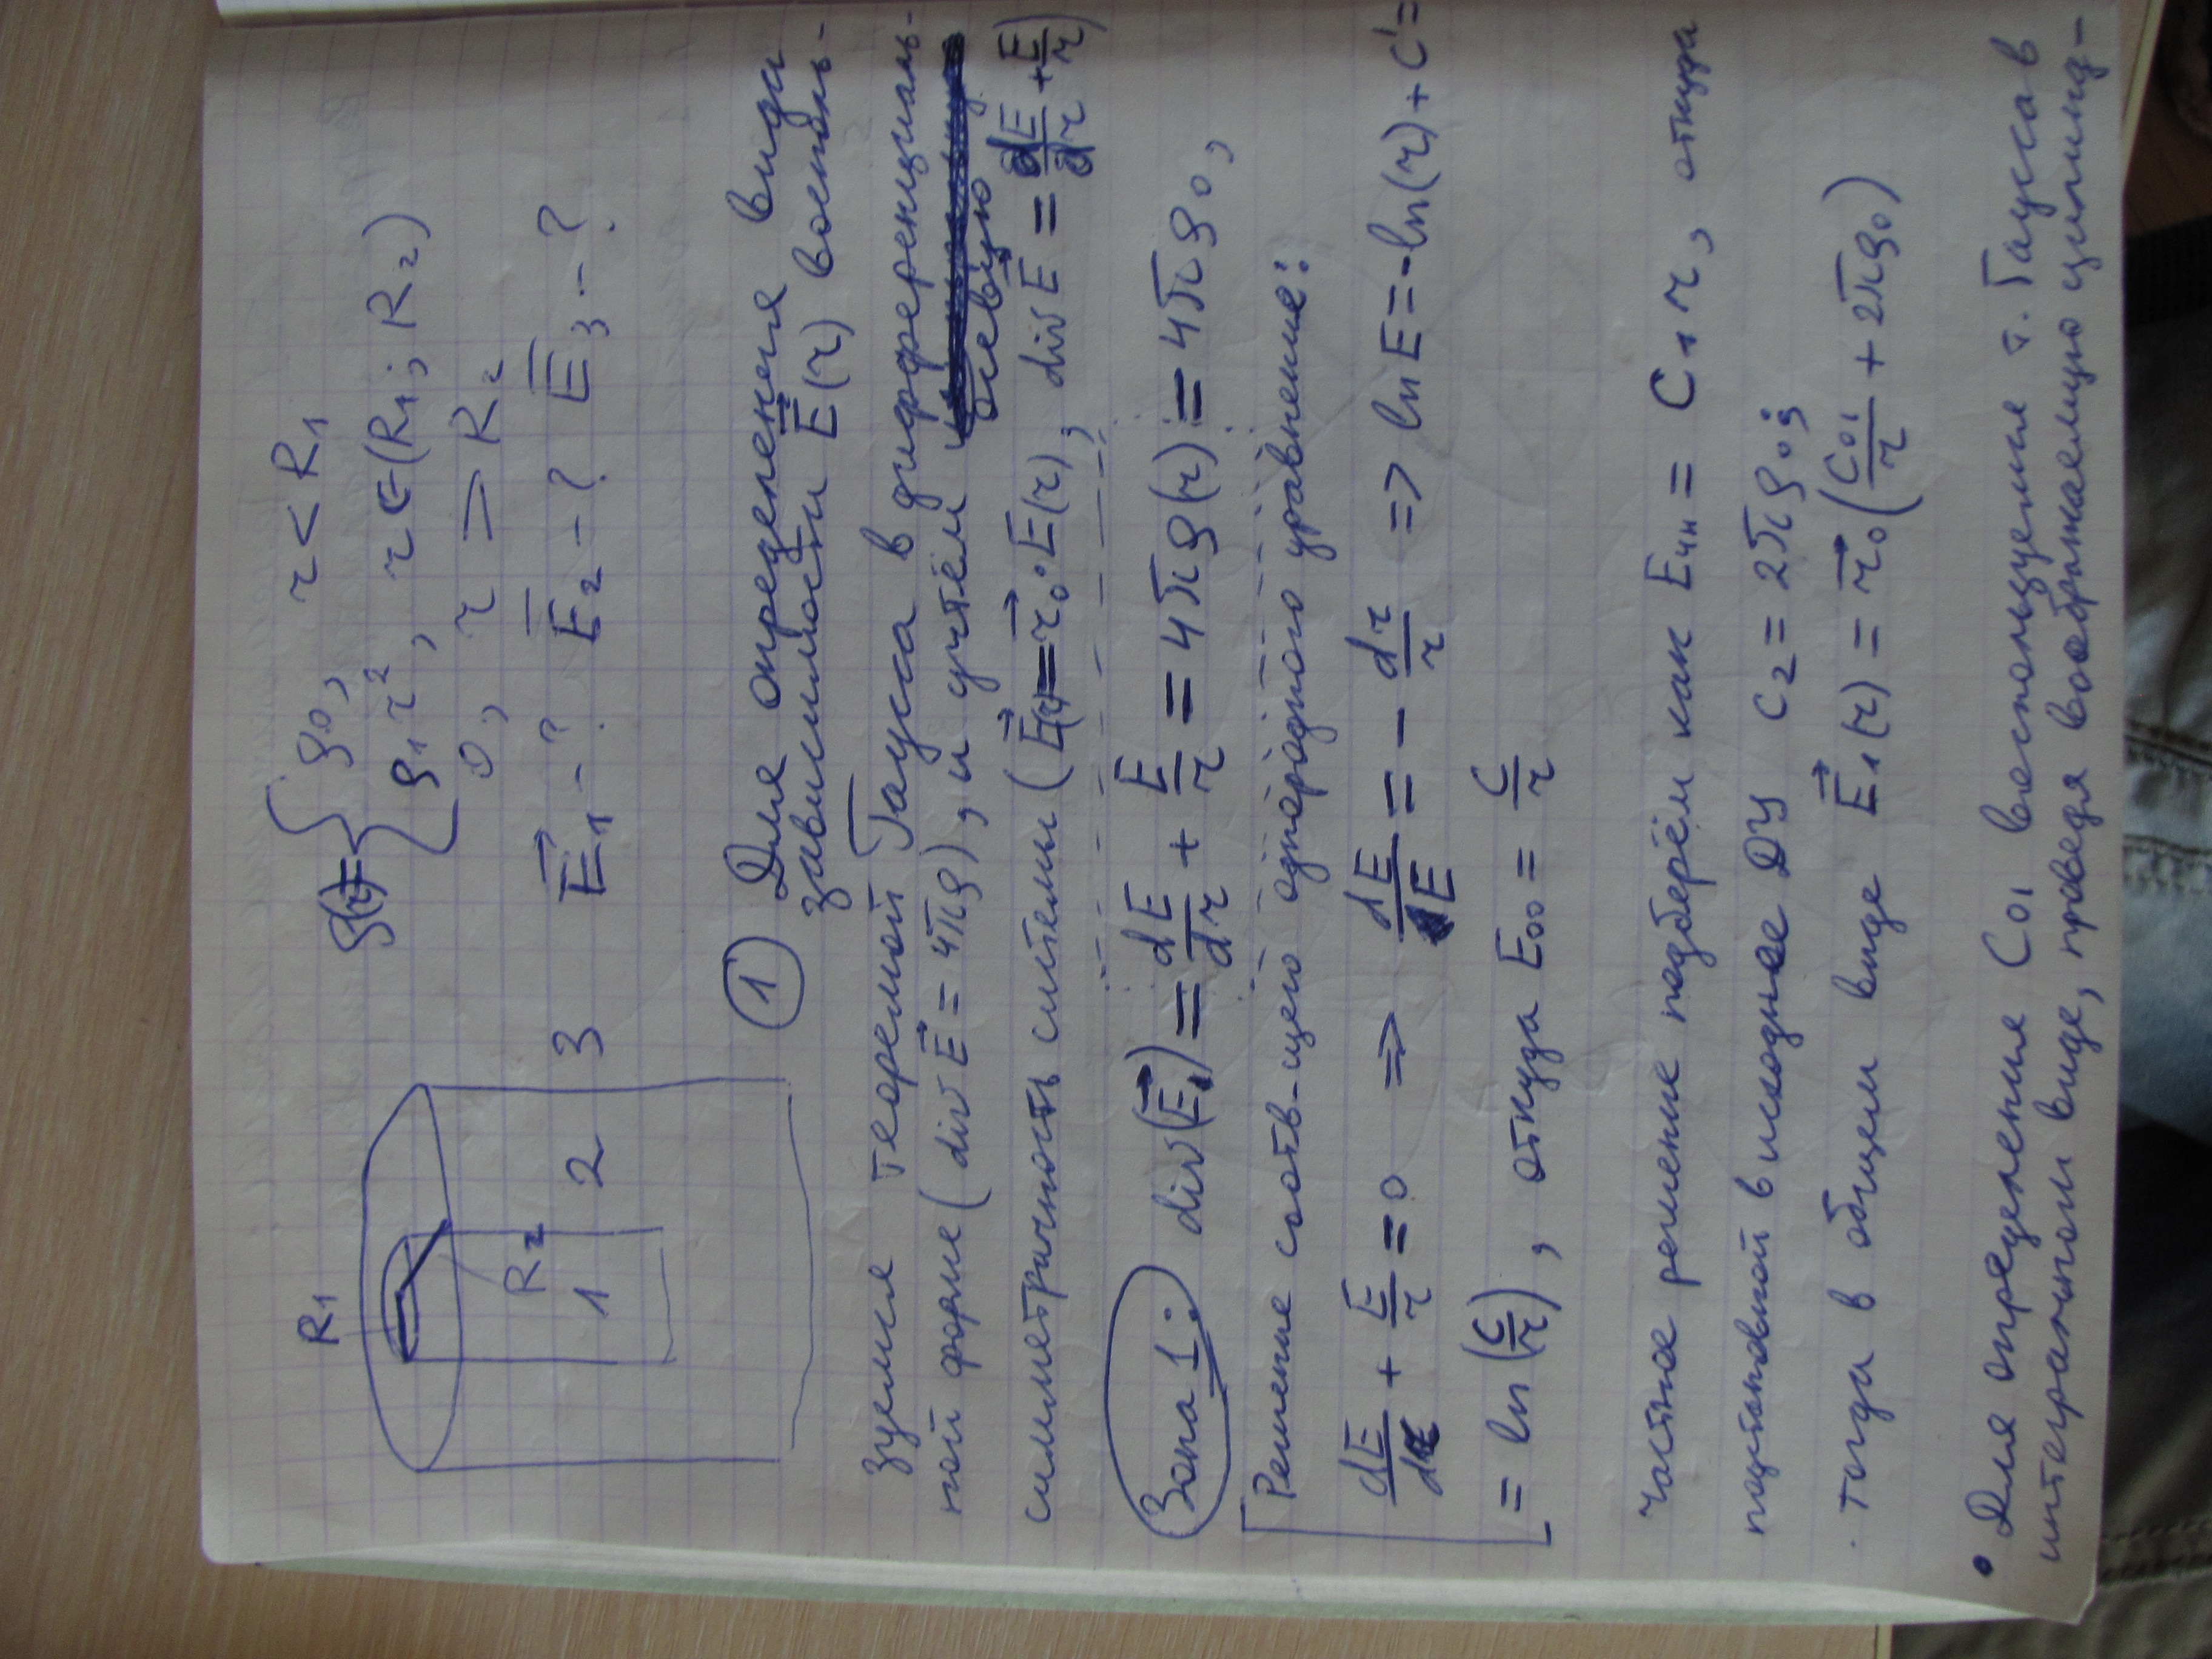 R1
ρ(r)= { ρ0, r < R1
ρ1 r², r ∈ (R1; R2)
0, r ⩾ R2
R2
1 2 3
E⃗1 - ? E̅2 - ? E̅3 - ?
① Для определения вида
зависимости E⃗(r) восполь-
зуемся теоремой Гаусса в дифференциаль-
ной форме (div E⃗ = 4πρ), и учтём
осевую
симметричность системы (E⃗(r) = r⃗0 · E(r), div E⃗ = dE/dr + E/r)
Зона 1: div(E⃗1) = dE/dr + E/r = 4πρ(r) = 4πρ0,
Решение соотв-щего однородного уравнения:
dE/dr + E/r = 0 => dE/E = - dr/r => ln E = -ln(r) + C' =
= ln(C/r), откуда E00 = C/r
частное решение подберём как Eчн = C1 r, откуда
подстановкой в исходное ДУ C2 = 2πρ0;
тогда в общем виде E⃗1(r) = r⃗0 (C01/r + 2πρ0)
• Для определения C01 воспользуемся т. Гаусса в
интегральном виде, проведя воображаемую цилинд-